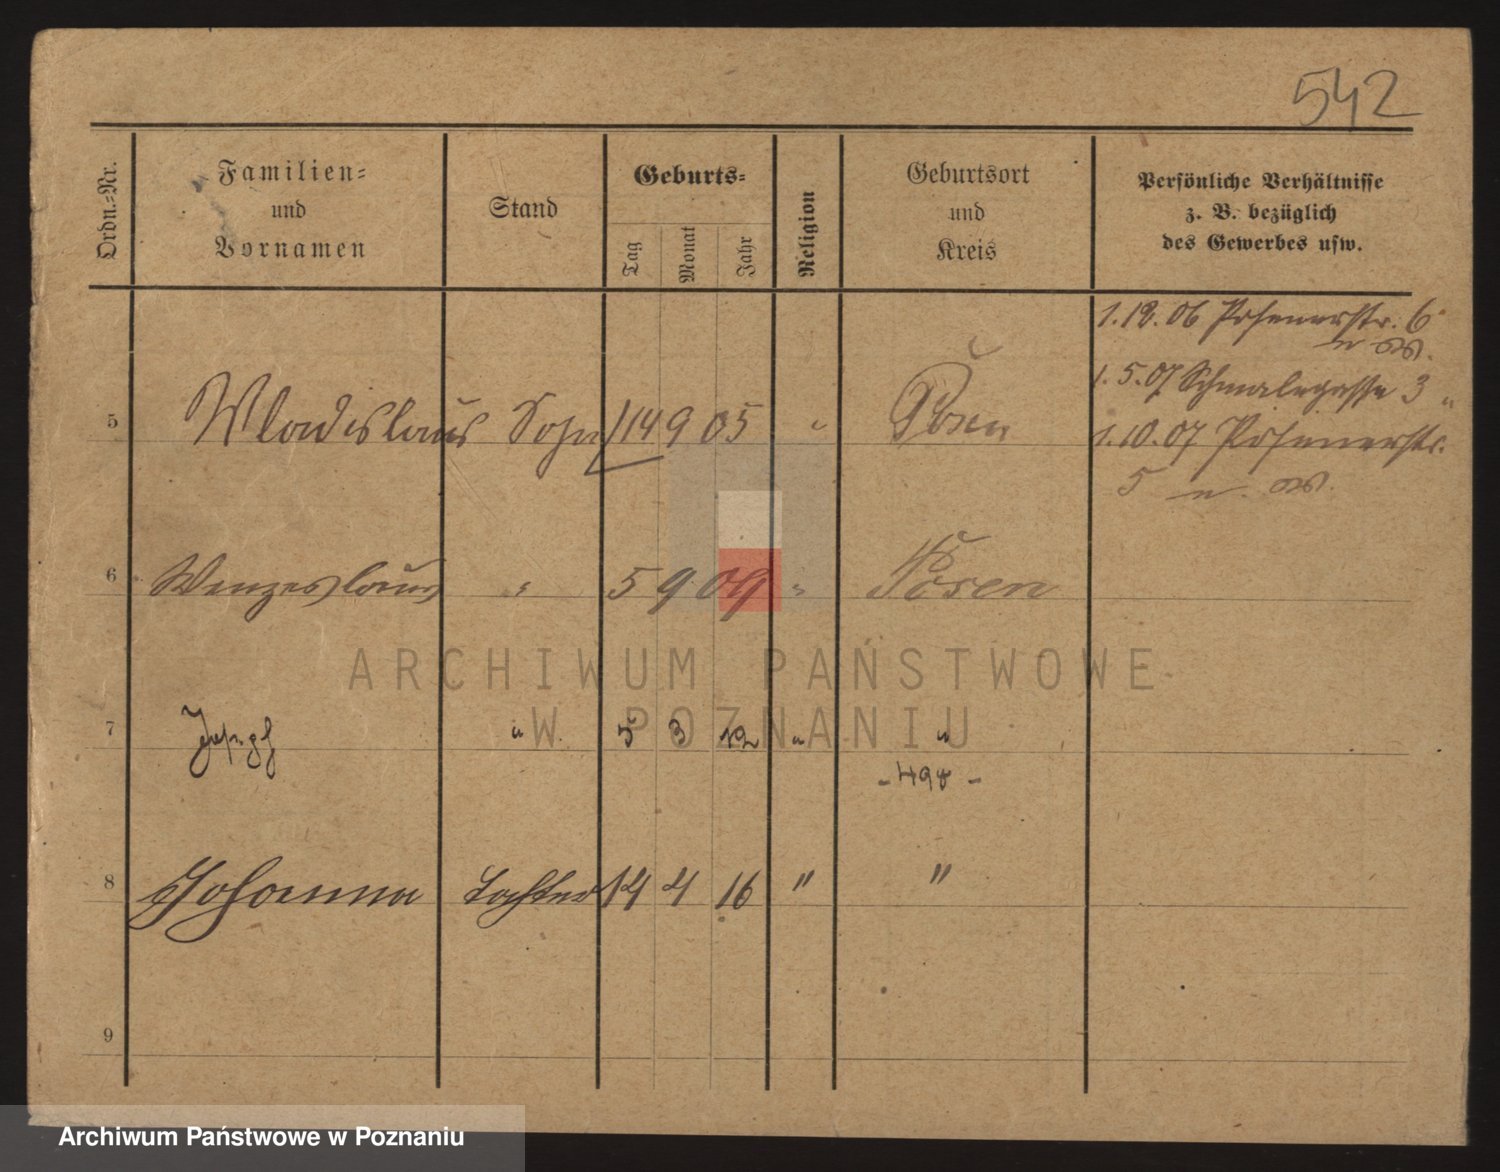 542
Ordn.-Nr.
Familien-
und
Vornamen
Stand
Geburts-
Tag
Monat
Jahr
Religion
Geburtsort
und
Kreis
Persönliche Verhältnisse
z. B. bezüglich
des Gewerbes usw.
1.12.06 Posenerstr. 6
1.5.07 Schmalegasse 3 "
1.10.07 Posenerstr.
5
5 Wladislaus Sohn 14 9 05 " Posen
6 Wenzeslaus " 5 9 09 " Posen
ARCHIWUM PAŃSTWOWE
W POZNANIU
7 Josef " 5 3 12 " "
- 498 -
8 Johanna Tochter 14 4 16 " "
9
Archiwum Państwowe w Poznaniu